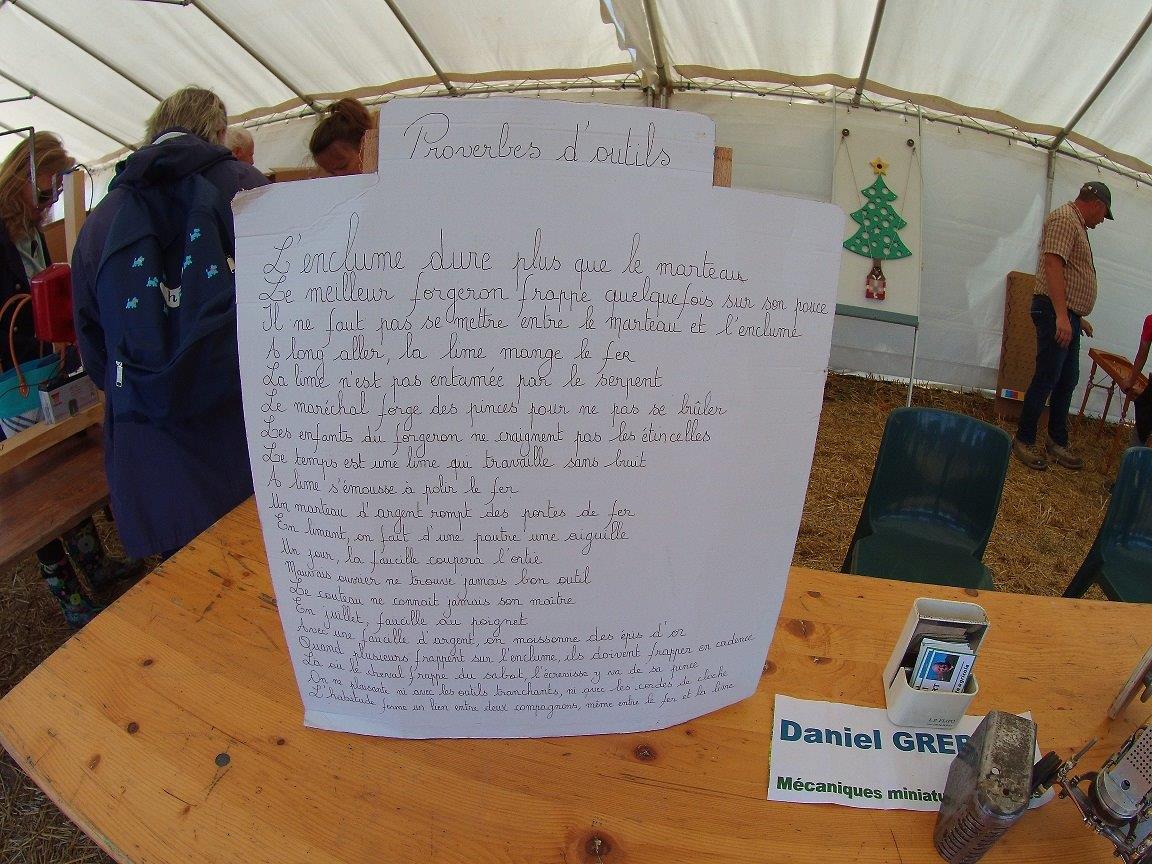 Proverbes d'outils
L'enclume dure plus que le marteau
Le meilleur forgeron frappe quelquefois sur son pouce
Il ne faut pas se mettre entre le marteau et l'enclume
A long aller, la lime mange le fer
La lime n'est pas entamée par le serpent
Le maréchal forge des pinces pour ne pas se brûler
Les enfants du forgeron ne craignent pas les étincelles
Le temps est une lime qui travaille sans bruit
A lime s'émousse à polir le fer
Un marteau d'argent rompt des portes de fer
En limant, on fait d'une poutre une aiguille
Un jour, la faucille coupera l'ortie
Mauvais ouvrier ne trouve jamais bon outil
Le couteau ne connait jamais son maître
En juillet, faucille au poignet
Avec une faucille d'argent, on moissonne des épis d'or
Quand plusieurs frappent sur l'enclume, ils doivent frapper en cadence
Là où le cheval frappe du sabot, l'écrevisse y va de sa pince
On ne plaisante ni avec les outils tranchants, ni avec les cordes de cloche
L'habitude forme un lien entre deux compagnons, même entre le fer et la lime
Daniel GREB
Mécaniques miniatu